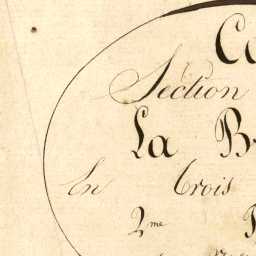 Section
La B
En Trois
2me